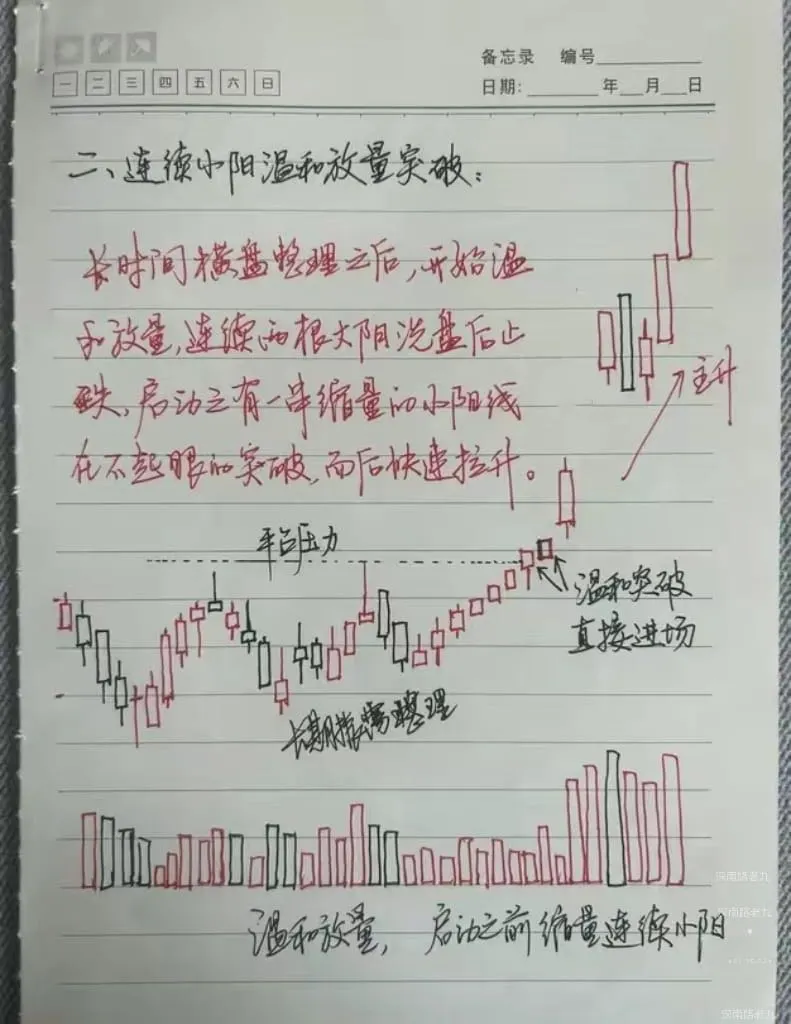 备忘录 编号
一 二 三 四 五 六 日
日期: 年 月 日
二、连续小阳温和放量突破:
长时间横盘整理之后,开始温
和放量,连续两根大阴洗盘后止
跌,启动之有一串缩量的小阳线
在不起眼的突破,而后快速拉升。
主升
平台压力
温和突破
直接进场
长期横盘整理
温和放量, 启动之前缩量连续小阳
深南路老九
深南路老九
深南路老九